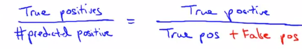 True positives
#predicted positive
=
True positive
True pos + False pos